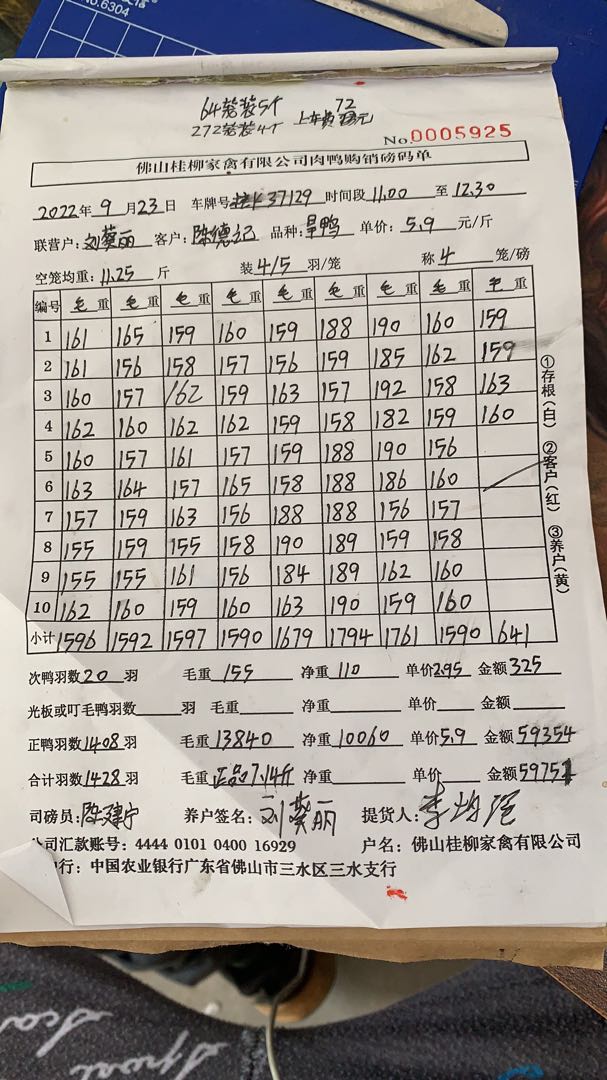 No.6304
64笼装5个 72
272笼装4个 上车费 元
No.0005925
佛山桂柳家禽有限公司肉鸭购销磅码单
2022年 9 月 23 日 车牌号 桂K37129 时间段 11.00 至 12.30
联营户: 刘葵丽 客户: 陈德记 品种: 旱鸭 单价: 5.9 元/斤
空笼均重: 11.25 斤 装 4/5 羽/笼 称 4 笼/磅
编号 毛重 毛重 毛重 毛重 毛重 毛重 毛重 毛重 毛重
1 161 165 159 160 159 188 190 160 159
2 161 156 158 157 156 159 185 162 159
3 160 157 162 159 163 157 192 158 163
4 162 160 162 162 159 158 182 159 160
5 160 157 161 157 159 188 190 156
6 163 164 157 165 158 188 186 160
7 157 159 163 156 188 188 156 157
8 155 159 155 158 190 189 159 158
9 155 155 161 156 184 189 162 160
10 162 160 159 160 163 190 159 160
小计 1596 1592 1597 1590 1679 1794 1761 1590 641
①存根(白) ②客户(红) ③养户(黄)
次鸭羽数 20 羽 毛重 155 净重 110 单价 2.95 金额 325
光板或叮毛鸭羽数 羽 毛重 净重 单价 金额
正鸭羽数 1408 羽 毛重 13840 净重 10060 单价 5.9 金额 59354
合计羽数 1428 羽 毛重 正品7.14斤 净重 单价 金额 59751
司磅员: 养户签名: 刘葵丽 提货人: 李均强
公司汇款账号: 4444 0101 0400 16929 户名: 佛山桂柳家禽有限公司
行: 中国农业银行广东省佛山市三水区三水支行